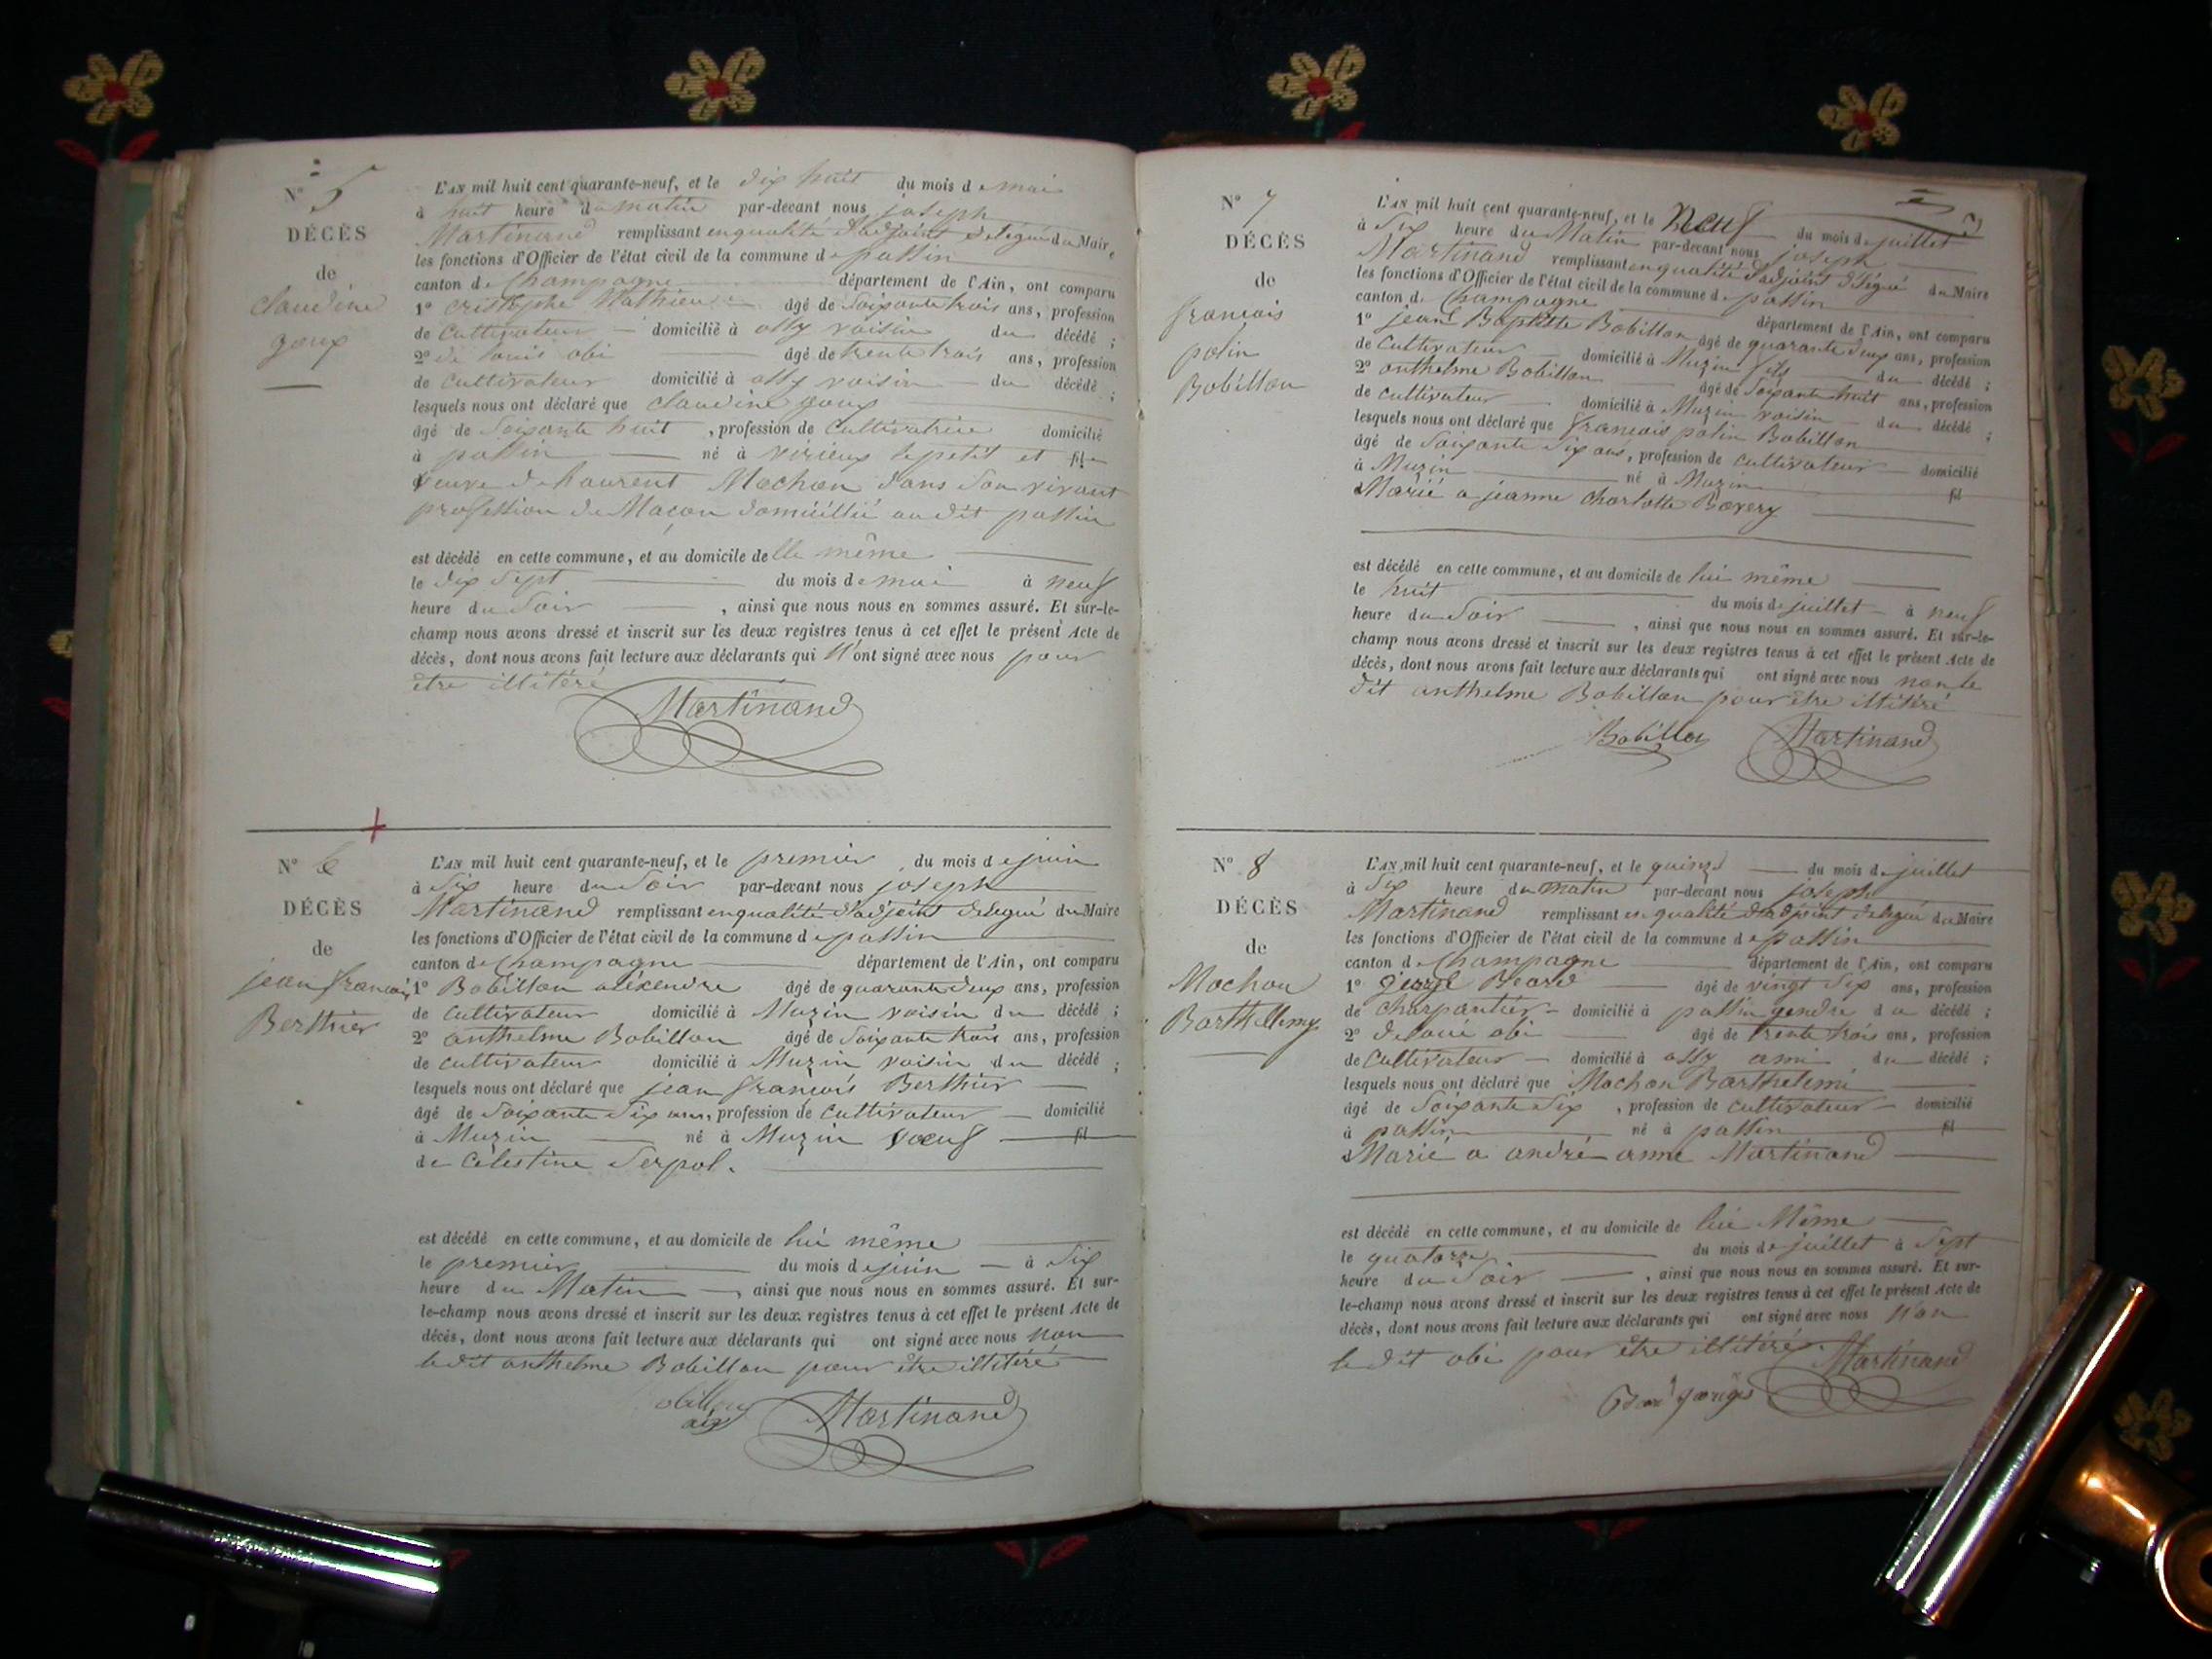 N° 5
DÉCÈS
de
claudine
goux
L'AN mil huit cent quarante-neuf, et le dix huit du mois de mai
à huit heure du matin par-devant nous joseph
Martinand remplissant en qualité d'adjoint délégué du Maire
les fonctions d'Officier de l'état civil de la commune de passin
canton de Champagne département de l'Ain, ont comparu
1° cristophe Mathieu âgé de soixante trois ans, profession
de Cultivateur domicilié à ossy voisin du décédé ;
2° de louis obi âgé de trente trois ans, profession
de cultivateur domicilié à ossy voisin du décédé ;
lesquels nous ont déclaré que claudine goux
âgé de soixante huit , profession de Cultivatrice domicilié
à passin né à virieux le petit et fil
veuve de laurent Mochon dans son vivant
profession de Maçon domicillié au dit passin
est décédé en cette commune, et au domicile de lle même
le dix sept du mois de mai à neuf
heure du soir , ainsi que nous nous en sommes assuré. Et sur-le-
champ nous avons dressé et inscrit sur les deux registres tenus à cet effet le présent Acte de
décès, dont nous avons fait lecture aux déclarants qui n'ont signé avec nous pour
être illitéré
Martinand
N° 6
DÉCÈS
de
jean françois
Berthier
L'AN mil huit cent quarante-neuf, et le premier du mois de juin
à six heure du soir par-devant nous joseph
Martinand remplissant en qualité d'adjoint délégué du Maire
les fonctions d'Officier de l'état civil de la commune de passin
canton de Champagne département de l'Ain, ont comparu
1° Bobillon aléxendre âgé de quarante deux ans, profession
de Cultivateur domicilié à Muzin voisin du décédé ;
2° anthelme Bobillon âgé de soixante trois ans, profession
de cultivateur domicilié à Muzin voisin du décédé ;
lesquels nous ont déclaré que jean françois Berthier
âgé de soixante six ans, profession de cultivateur domicilié
à Muzin né à Muzin voeuf fil
de Célestine Serpol.
est décédé en cette commune, et au domicile de lui même
le premier du mois de juin à six
heure du Matin , ainsi que nous nous en sommes assuré. Et sur-
le-champ nous avons dressé et inscrit sur les deux registres tenus à cet effet le présent Acte de
décès, dont nous avons fait lecture aux déclarants qui ont signé avec nous non
le dit anthelme Bobillon pour être illitéré
Martinand
N° 7
DÉCÈS
de
francois
polin
Bobillon
L'AN mil huit cent quarante-neuf, et le Neuf du mois de juillet
à six heure du Matin par-devant nous joseph
Martinand remplissant en qualité d'adjoint délégué du Maire
les fonctions d'Officier de l'état civil de la commune de passin
canton de Champagne département de l'Ain, ont comparu
1° jean Baptiste Bobillon âgé de quarante deux ans, profession
de Cultivateur domicilié à Muzin fils du décédé ;
2° anthelme Bobillon âgé de soixante huit ans, profession
de cultivateur domicilié à Muzin voisin du décédé ;
lesquels nous ont déclaré que francois polin Bobillon
âgé de soixante six ans, profession de cultivateur domicilié
à Muzin né à Muzin fil
Marié a jeanne charlotte Bovery
est décédé en cette commune, et au domicile de lui même
le huit du mois de juillet à neuf
heure du soir , ainsi que nous nous en sommes assuré. Et sur-le-
champ nous avons dressé et inscrit sur les deux registres tenus à cet effet le présent Acte de
décès, dont nous avons fait lecture aux déclarants qui ont signé avec nous non le
dit anthelme Bobillon pour être illitéré
Bobillon Martinand
N° 8
DÉCÈS
de
Mochon
Barthellemy
L'AN mil huit cent quarante-neuf, et le quinze du mois de juillet
à six heure du matin par-devant nous joseph
Martinand remplissant en qualité d'adjoint délégué du Maire
les fonctions d'Officier de l'état civil de la commune de passin
canton de Champagne département de l'Ain, ont comparu
1° Béard âgé de vingt six ans, profession
de charpantier domicilié à passin gendre du décédé ;
2° de loui obi âgé de trente trois ans, profession
de Cultivateur domicilié à ossy ami du décédé ;
lesquels nous ont déclaré que Mochon Barthelemi
âgé de soixante six , profession de cultivateur domicilié
à passin né à passin fil
Marié a andré anne Martinand
est décédé en cette commune, et au domicile de lui Même
le quatorze du mois de juillet à sept
heure du soir , ainsi que nous nous en sommes assuré. Et sur-
le-champ nous avons dressé et inscrit sur les deux registres tenus à cet effet le présent Acte de
décès, dont nous avons fait lecture aux déclarants qui ont signé avec nous non
le dit obi pour être illitéré. Martinand